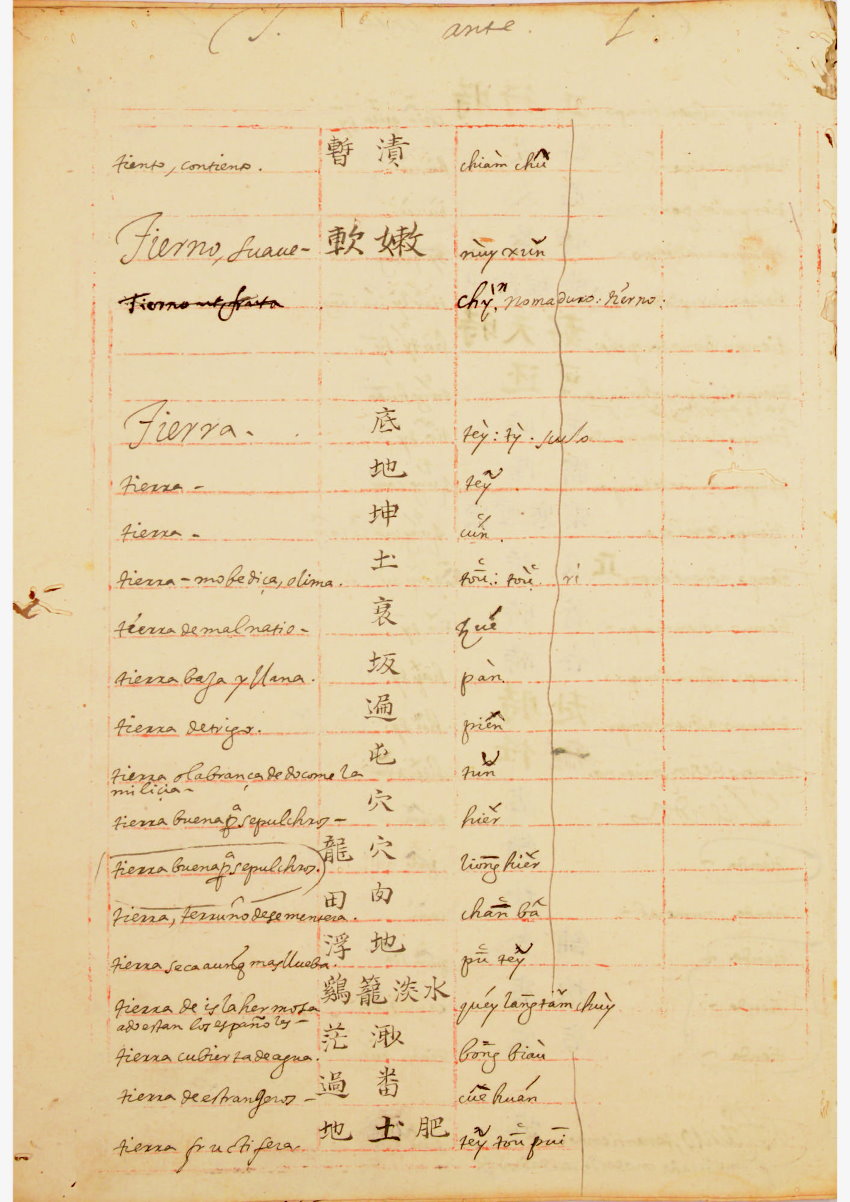 ante.
tiento, contiento. 暫 漬 chiàm chŭ
Tierno, suave- 軟 嫩 nùy xŭn
Tierno ut fruta chỳ, no maduro: tierno:
Tierra- 底 tèy: tỳ. suelo
tierra- 地 teỹ
tierra- 坤 cŭn.
tierra-mobediça, o lima. 土 toŭ: toŭ.
tierra de mal natio- 衰
tierra baja y llana. 坂 pàn.
tierra de trigo. 遍 pièn
tierra o labrança de do come la 屯 tŭn
miliçia-
tierra buena pᵃ sepulchros- 穴 hiĕr
tierra buena pᵃ sepulchros. 龍 穴 liōng hiĕr
tierra, terruño de sementera. 田 chān bâ
tierra seca aunq̃ mas llueba. 浮 地 pŭ teỹ
tierra de isla hermosa 鷄 籠 淡 水 quéy lāng tăm chùy
ado estan los españoles-
tierra cubierta de agua. 茫 渺 bōng biàu
tierra de estrangeros- 過 畨 cūe huán
tierra fructifera. 地 土 肥 teỹ toŭ puî